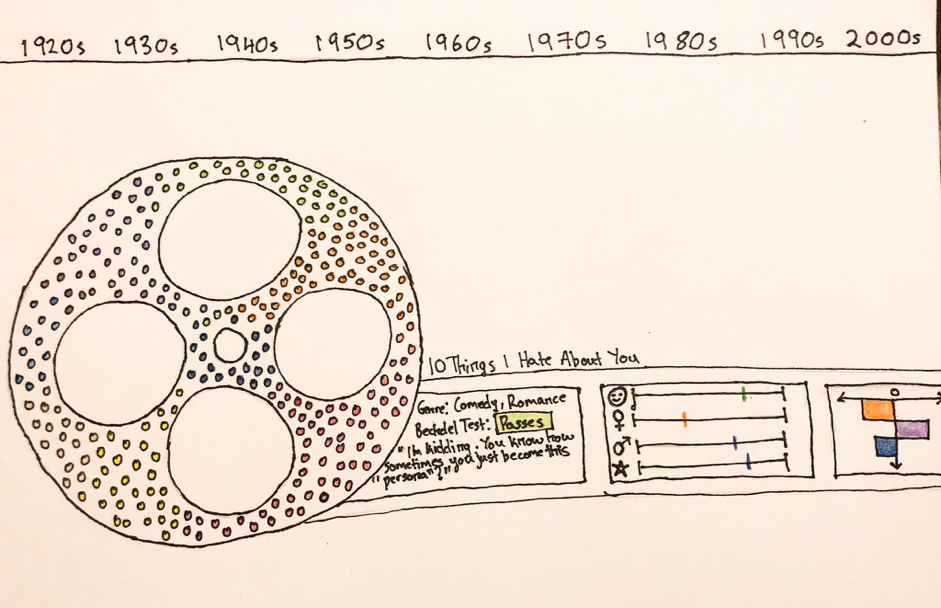 1920s 1930s 1940s 1950s 1960s 1970s 1980s 1990s 2000s
10 Things I Hate About You
Genre: Comedy, Romance
Bechdel Test: Passes
"I'm kidding. You know how
sometimes you just become this
"persona"?"
0